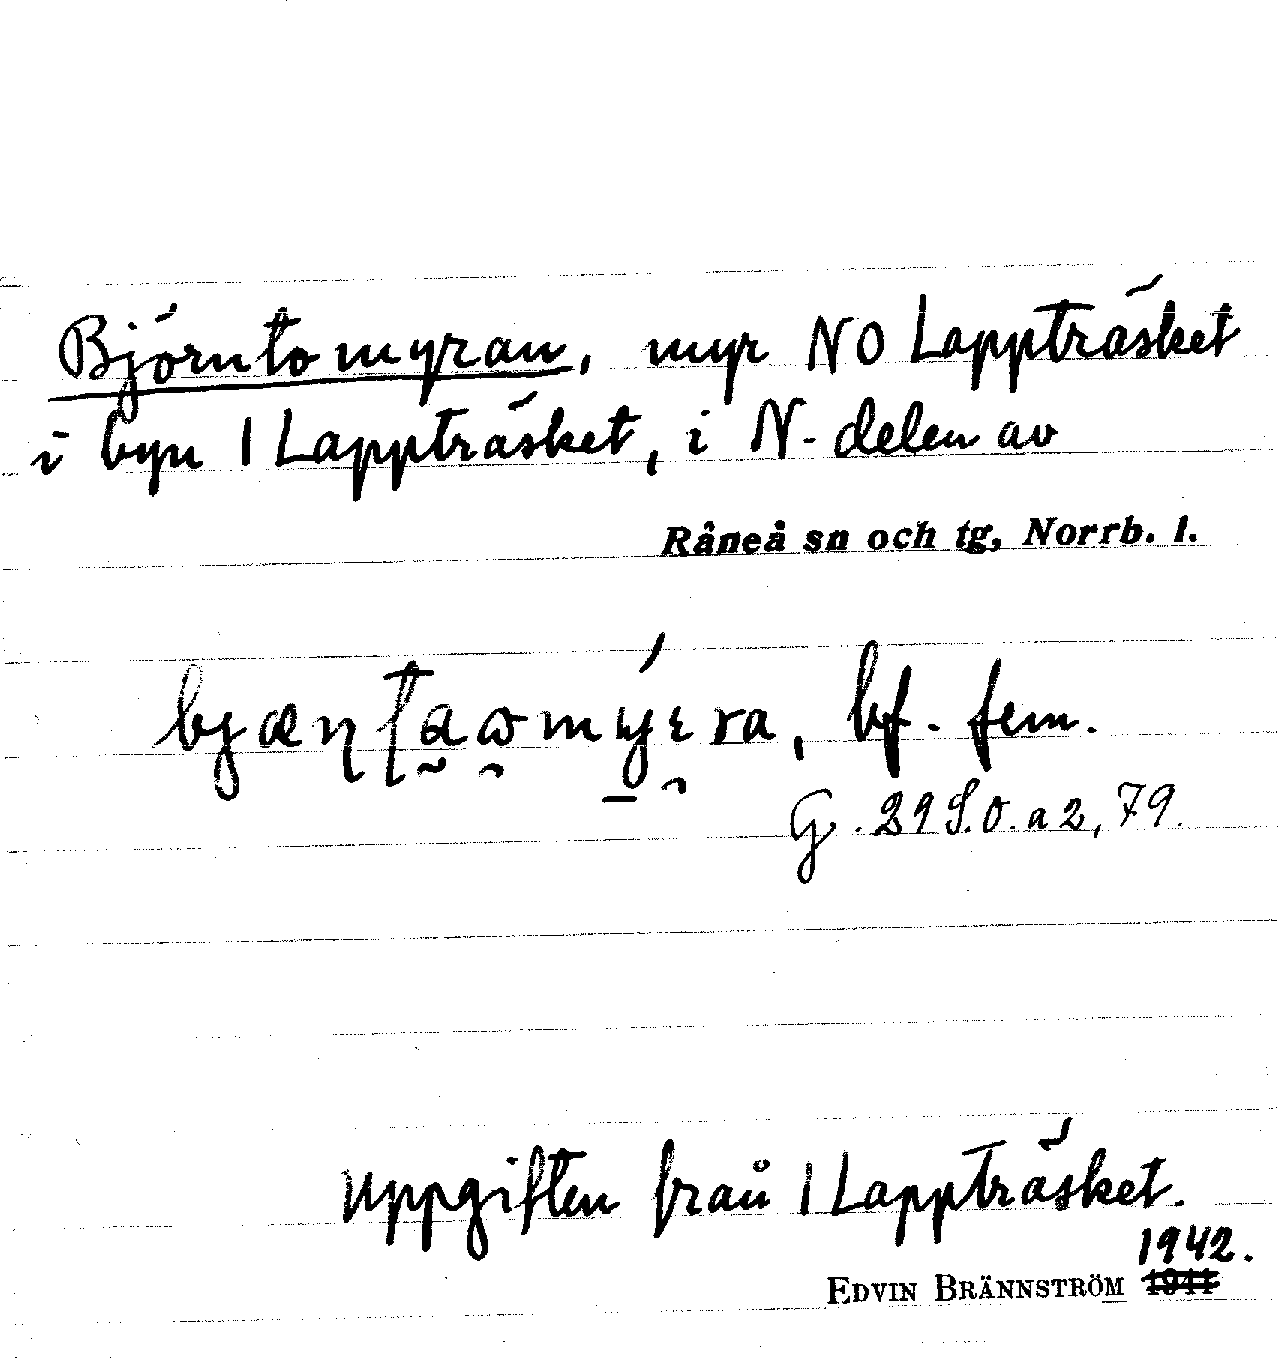 Björntomyran, myr NO Lappträsket
i byn 1 Lappträsket, i N-delen av
Råneå sn och tg, Norrb. l.
bf. fem.
G. 29 S.O. a 2, 79.
Uppgiften från 1 Lappträsket.
1942.
EDVIN BRÄNNSTRÖM 1941